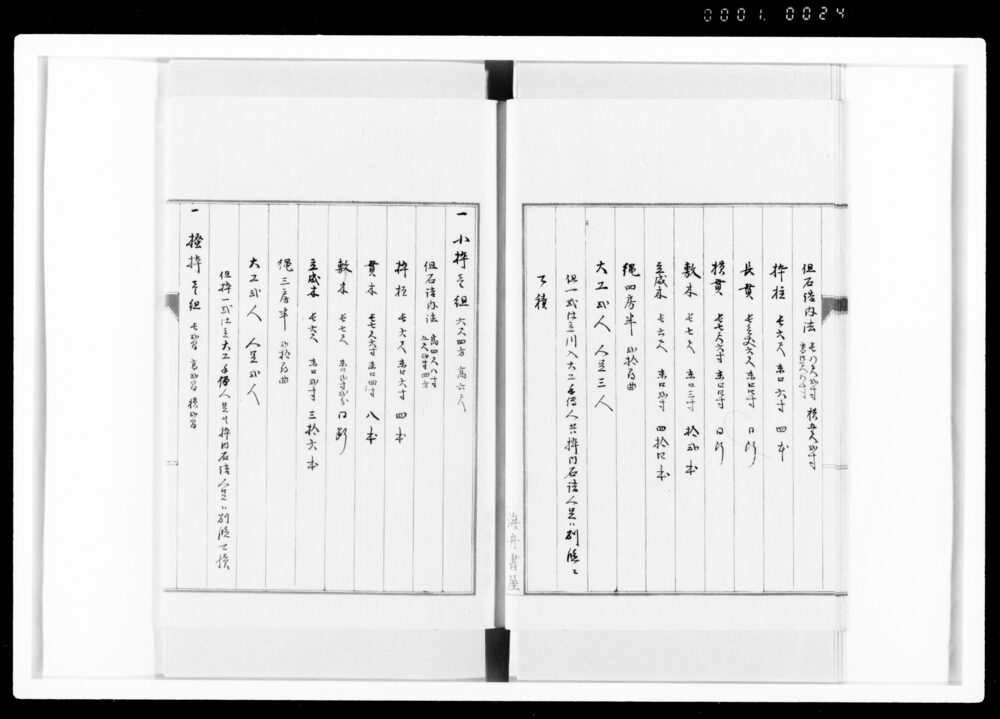 0001. 0024
但石詰内法
枠柱 長六尺 末口六寸 四本
長貫 末口四寸 同断
横貫 長七尺六寸 末口四寸 同断
敷木 長七尺 末口三寸 拾弐本
立成木 長六尺 末口弐寸 四拾四本
縄四房半 弐拾房曲
大工弐人 人足三人
但一式仕立川入大工手伝人共枠内石詰人足ハ別段ニ
可積
海舟書屋
一 小枠壱組 六尺四方 高六尺
但石詰内法 高四尺八寸 五尺弐寸四方
枠柱 長六尺 末口六寸 四本
貫木 長七尺六寸 末口四寸 八本
敷木 長七尺 同断
立成木 長六尺 末口弐寸 三拾六本
縄三房半 弐拾房曲
大工弐人 人足弐人
但枠一式仕立大工手伝人足共枠内石詰人足ハ別段可積
一 枠壱組